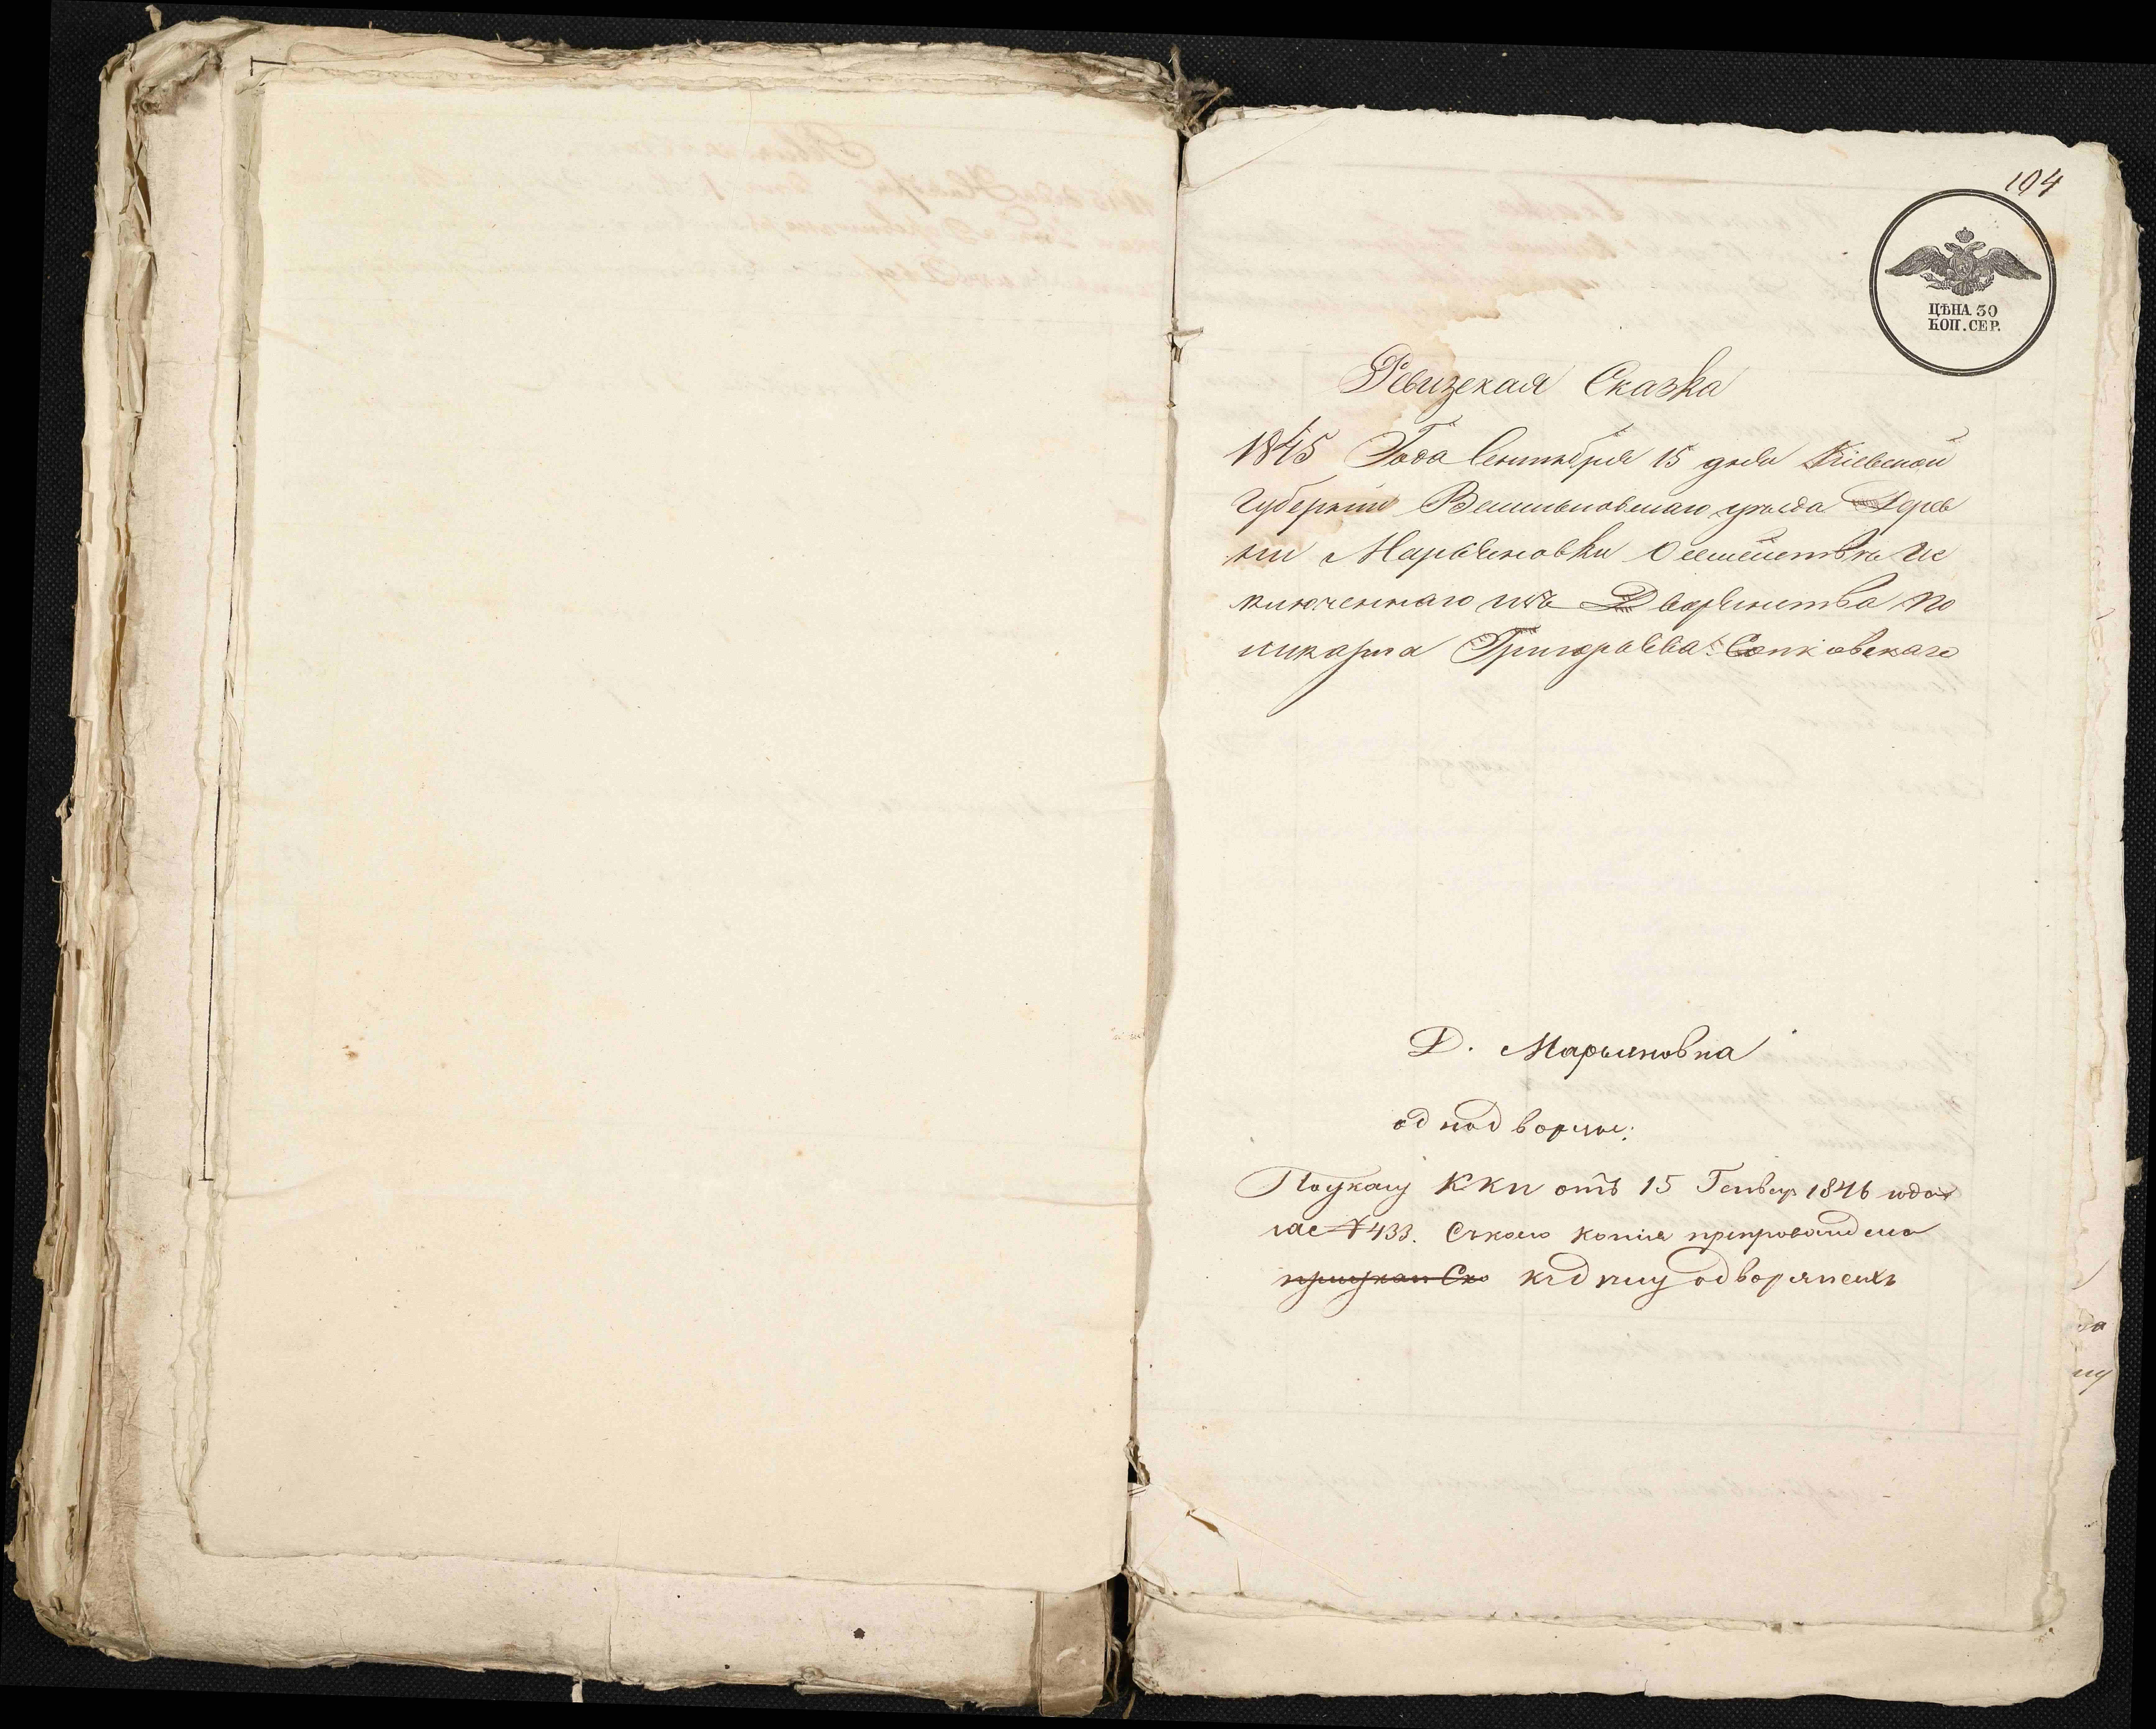 194
ЦѢНА 30
КОП. СЕР.
Ревизская Сказка
1845 Года Сентября 15 дня Кіевской
Губерніи Васильковскаго уѣзда Дерев
ни Марьяновки О семействѣ Ис
ключеннаго изъ Дворянства По
ликарпа Григорьева Сопковскаго
Д. Марьяновка
однодворцы:
По указу ККП отъ 15 Генвар 1846 года
№ 433. Съ коего копія препровождена
къ о дворянехъ